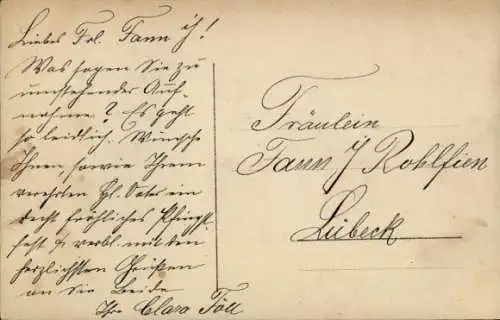 Liebes Frl. Fann ij!
Was sagen Sie zu
umstehender Auf-
nahme? Es geht
so leidlich. Wünsche
Ihnen, sowie Ihrem
verehrten Hl. Vater ein
recht fröhliches Pfingst-
fest & verbl. mit den
herzlichsten Grüßen
an Sie Beide
Ihre Clara Töll
Fräulein
Fann J Rohlfien
Lübeck